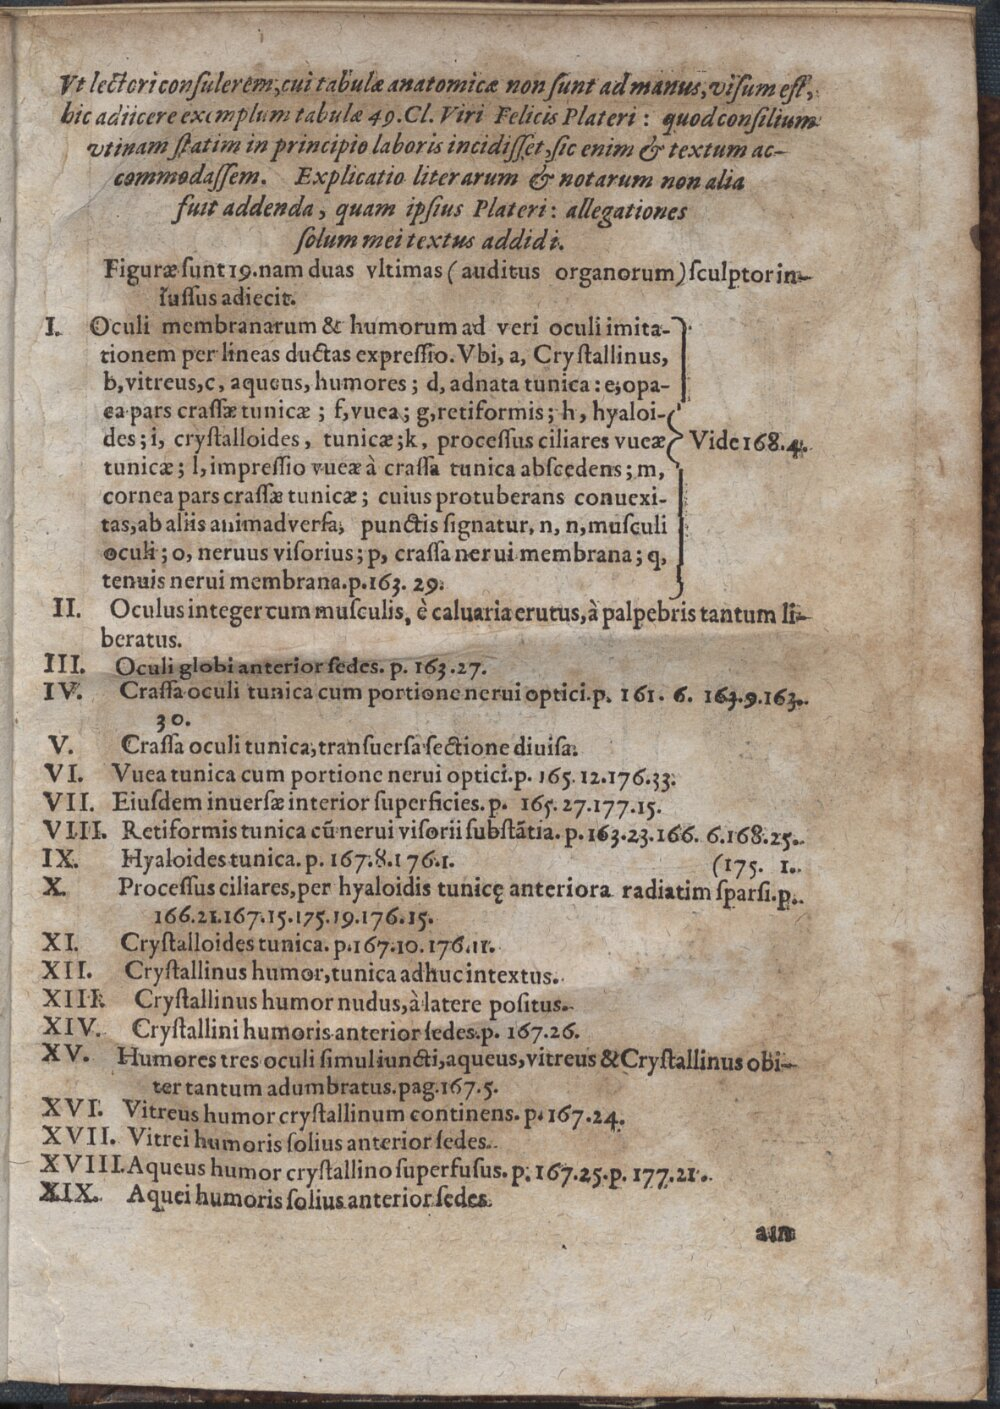 Vt lectori consulerem, cui tabulæ anatomicæ non sunt ad manus, visum est,
hic adiicere exemplum tabulæ 49. Cl. Viri Felicis Plateri: quod consilium
vtinam statim in principio laboris incidisset, sic enim & textum ac-
commodassem. Explicatio literarum & notarum non alia
fuit addenda, quam ipsius Plateri: allegationes
solum mei textus addidi.
Figuræ sunt 19. nam duas vltimas (auditus organorum) sculptor in-
iussus adiecit.
I. Oculi membranarum & humorum ad veri oculi imita-
tionem per lineas ductas expressio. Vbi, a, Crystallinus,
b, vitreus, c, aqueus, humores; d, adnata tunica: e, opa-
ca pars crassæ tunicæ; f, vuea; g, retiformis; h, hyaloi-
des; i, crystalloides, tunicæ; k, processus ciliares vueæ Vide 168. 4.
tunicæ; l, impressio vueæ à crassa tunica abscedens; m,
cornea pars crassæ tunicæ; cuius protuberans conuexi-
tas, ab aliis animadversa, punctis signatur, n, n, musculi
oculi; o, neruus visorius; p, crassa nerui membrana; q,
tenuis nerui membrana. p. 163. 29.
II. Oculus integer cum musculis, è caluaria erutus, à palpebris tantum li-
beratus.
III. Oculi globi anterior sedes. p. 163. 27.
IV. Crassa oculi tunica cum portione nerui optici. p. 161. 6. 163. 9. 163.
30.
V. Crassa oculi tunica, transuersa sectione diuisa.
VI. Vuea tunica cum portione nerui optici. p. 165. 12. 176. 33.
VII. Eiusdem inuersæ interior superficies. p. 165. 27. 177. 15.
VIII. Retiformis tunica cū nerui visorii substātia. p. 163. 23. 166. 6. 168. 25.
IX. Hyaloides tunica. p. 167. 8. 176. 1. (175. 1.
X. Processus ciliares, per hyaloidis tunicę anteriora radiatim sparsi. p.
166. 21. 167. 15. 175. 19. 176. 15.
XI. Crystalloides tunica. p. 167. 10. 176. 11.
XII. Crystallinus humor, tunica adhuc intextus.
XIII. Crystallinus humor nudus, à latere positus.
XIV. Crystallini humoris anterior sedes. p. 167. 26.
XV. Humores tres oculi simul iuncti, aqueus, vitreus & Crystallinus obi-
ter tantum adumbratus. pag. 167. 5.
XVI. Vitreus humor crystallinum continens. p. 167. 24.
XVII. Vitrei humoris solius anterior sedes.
XVIII. Aqueus humor crystallino superfusus. p. 167. 25. p. 177. 21.
XIX. Aquei humoris solius anterior sedes.